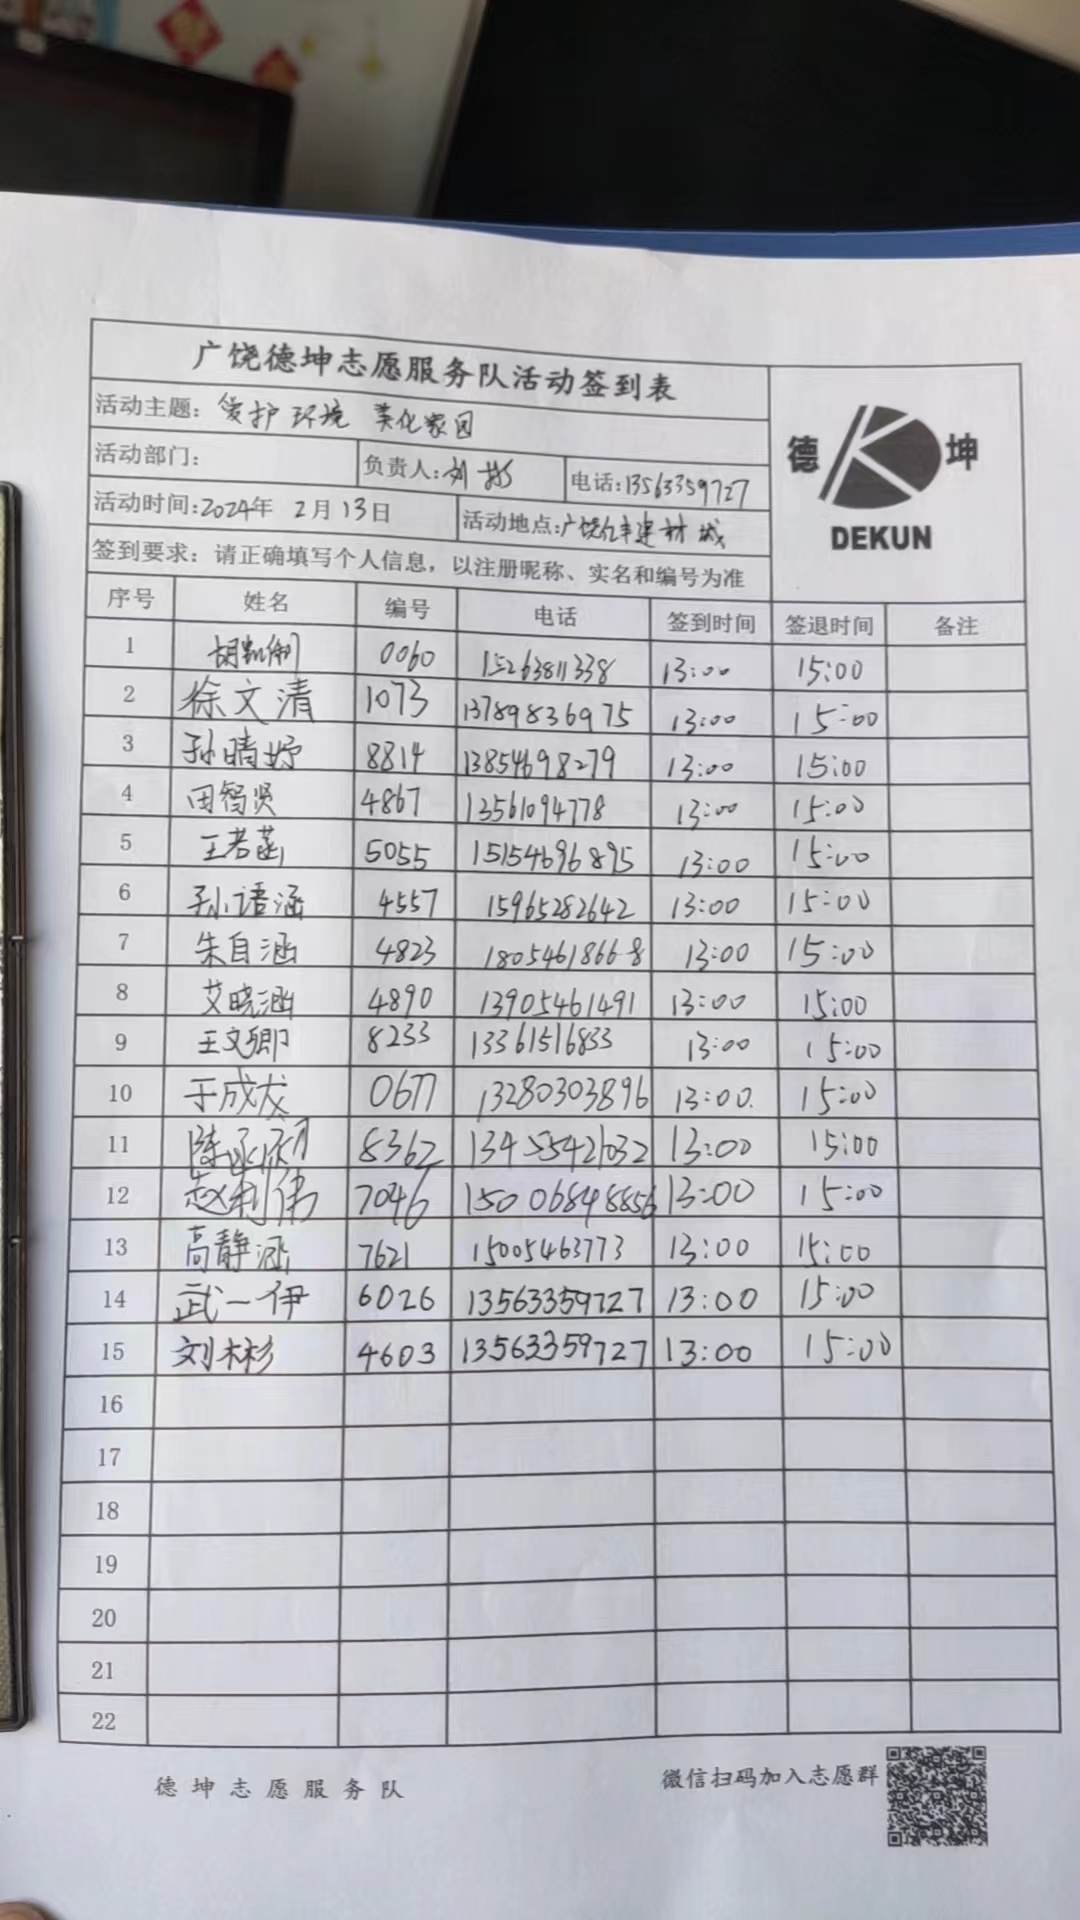 广饶德坤志愿服务队活动签到表
活动主题：爱护环境 美化家园
德 坤
DEKUN
活动部门： 负责人：刘彬 电话：13563359727
活动时间：2024年 2月13日 活动地点：广饶亿丰建材城
签到要求：请正确填写个人信息，以注册昵称、实名和编号为准
序号 姓名 编号 电话 签到时间 签退时间 备注
1 胡凯俐 0060 15263811338 13:00 15:00
2 徐文清 1073 13789836975 13:00 15:00
3 孙晴妤 8814 13854698279 13:00 15:00
4 田智贤 4867 13561094778 13:00 15:00
5 王若菡 5055 15154696895 13:00 15:00
6 孙语涵 4557 15965282642 13:00 15:00
7 朱自涵 4823 18054618668 13:00 15:00
8 艾晓涵 4890 13905461491 13:00 15:00
9 王文卿 8233 13361516833 13:00 15:00
10 于成龙 0677 13280303896 13:00 15:00
11 陈 8362 13455421032 13:00 15:00
12 赵利伟 7046 15006848856 13:00 15:00
13 高静涵 7621 15005463773 13:00 15:00
14 武一伊 6026 13563359727 13:00 15:00
15 刘彬彬 4603 13563359727 13:00 15:00
16
17
18
19
20
21
22
德坤志愿服务队 微信扫码加入志愿群